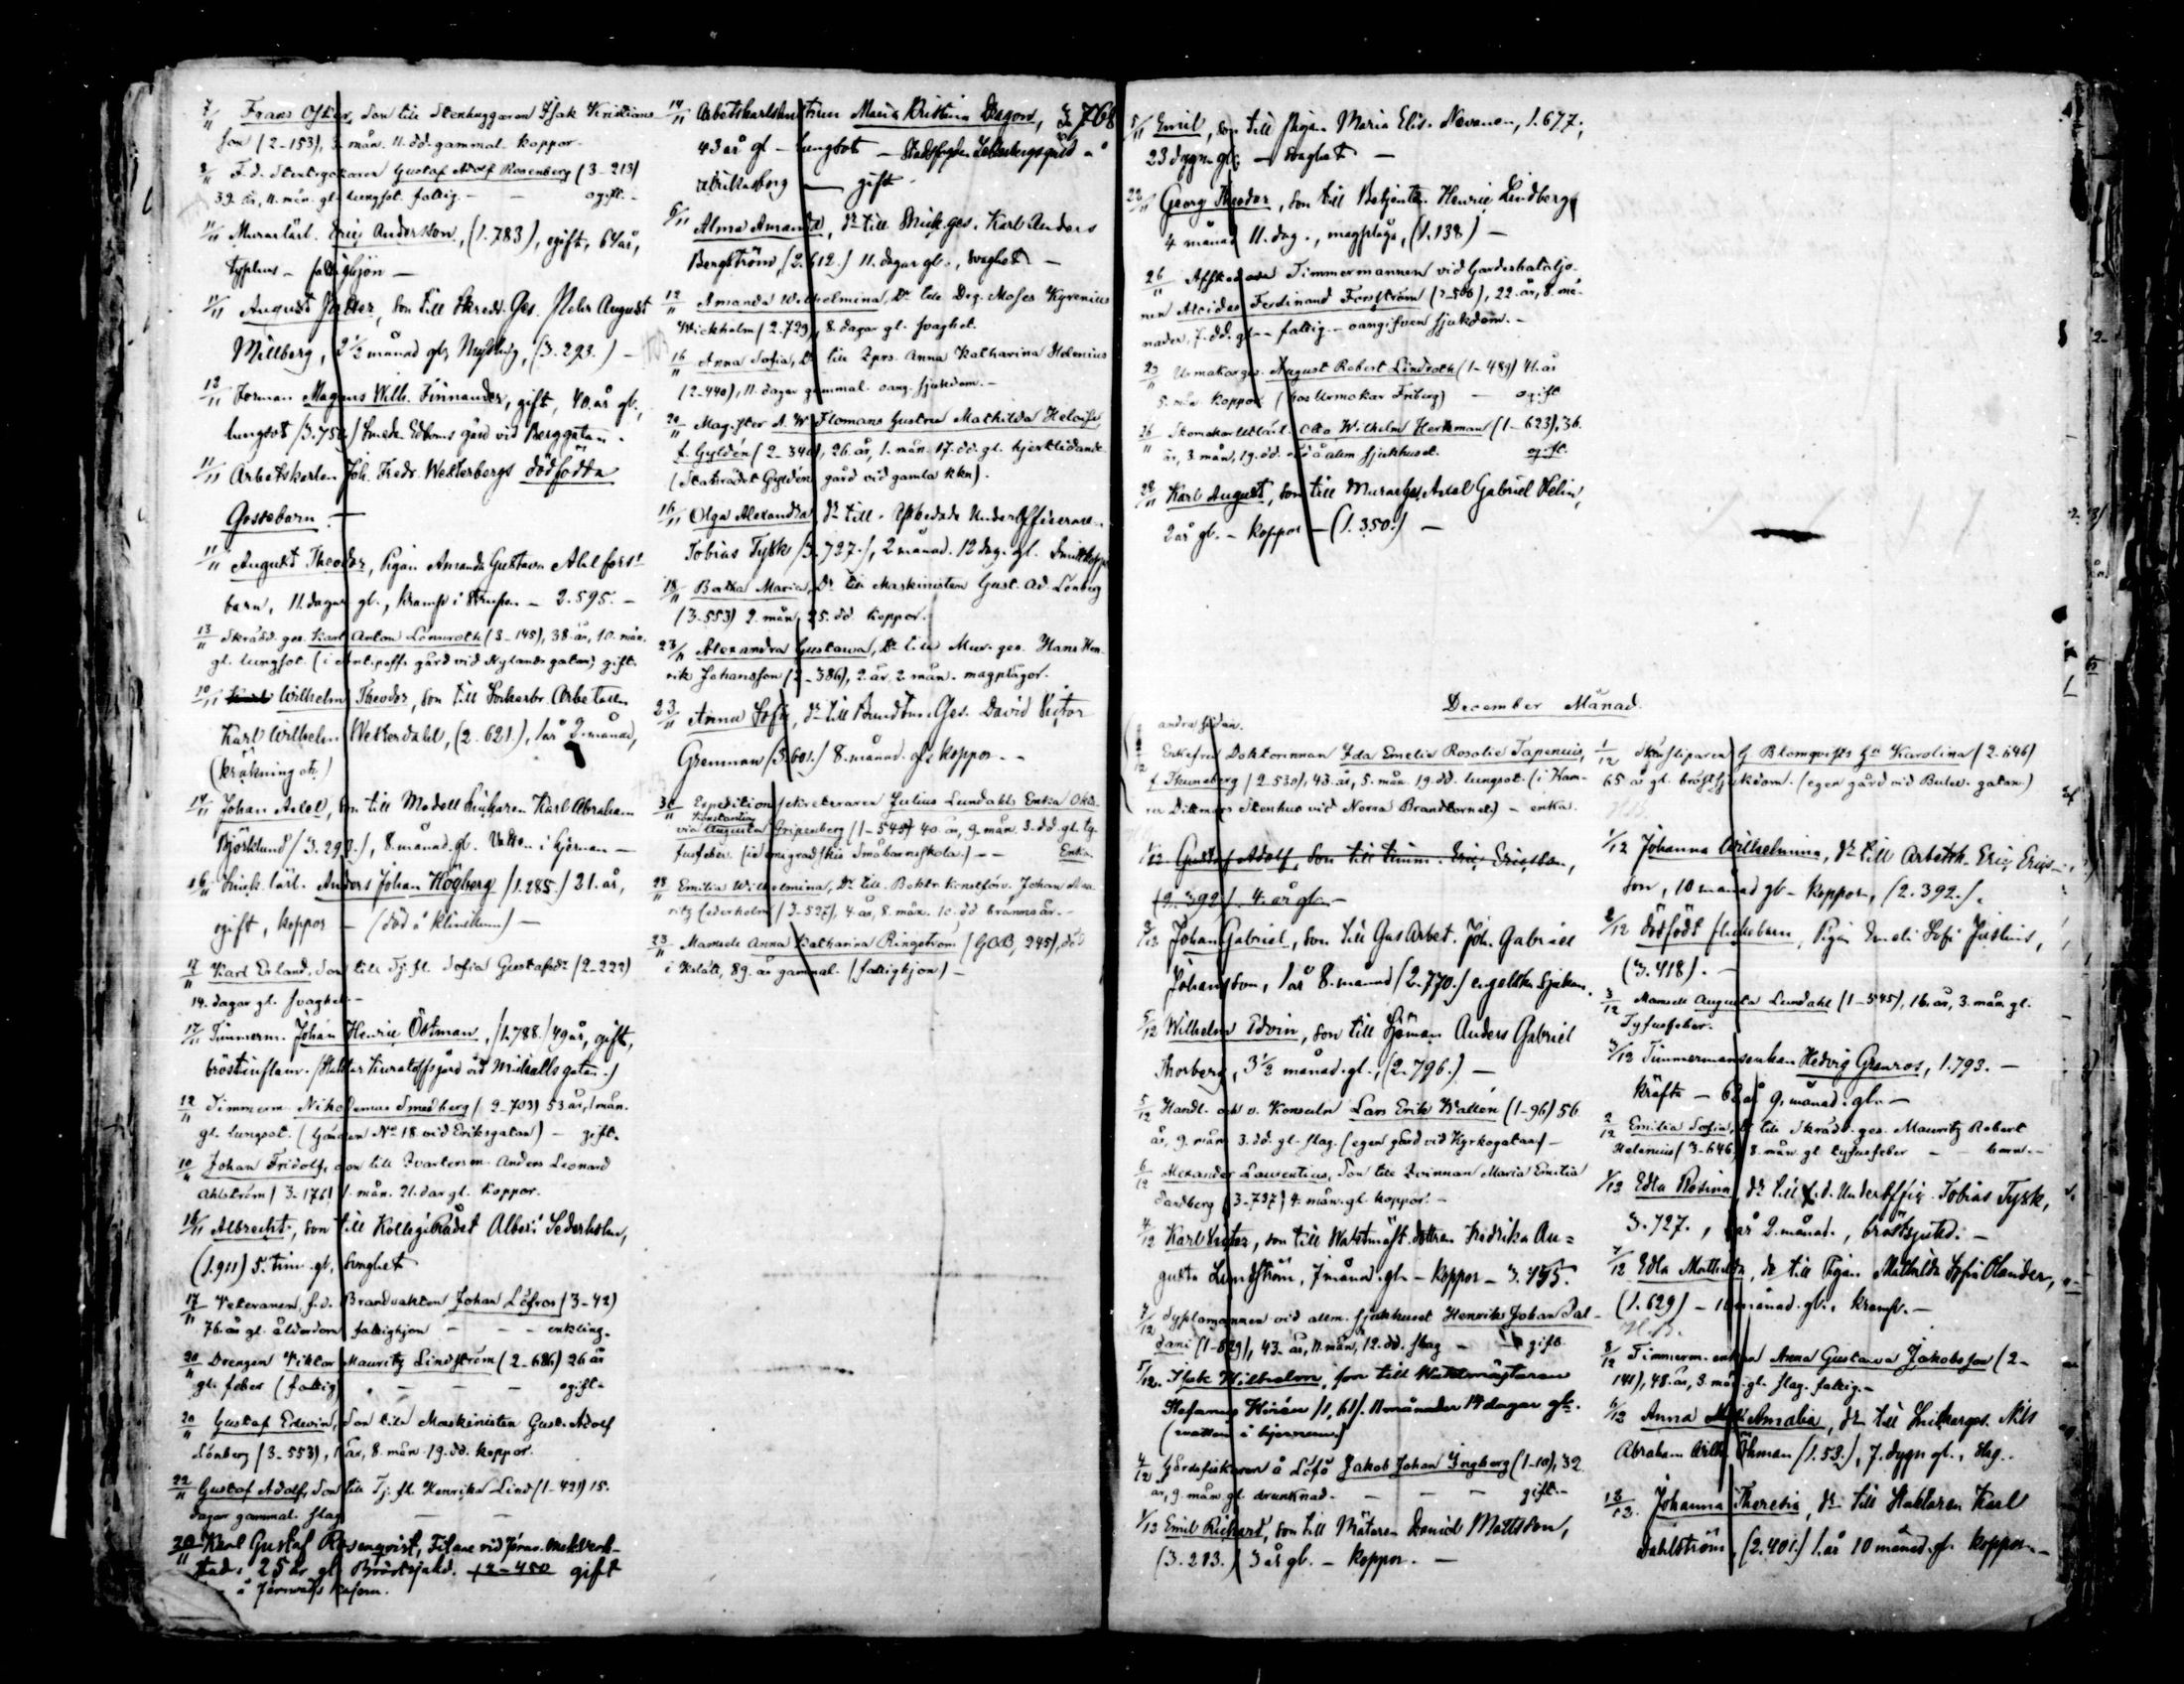 7/11 Frans Oskar, Son till Stenhuggaren Isak Kristians
son (2-153), 3. mån. 11. dd. gammal. koppor.
8/11 F. d. Gustaf Adolf Rosenberg (3-213)
39. år, 11. mån. gl. lungsot. fattig. - - ogift. -
11/11 Murarlärl. Eric Andersson, (1.783), ogift, 64 år,
typhus - fattighjon -
11/11 August, Son till Skredd. Ges. August
Millberg, 2 1/2 månad gl, (3.293.) -
12/11 Forman Magnus Wilh. Finnander, gift, 40. år gl.,
lungsot /3.750/ Edboms gård vid Berggatan.
11/11 Arbetskarlen Joh. Fredr. Westerbergs dödfödta
Gossebarn. -
11/11 August Theodor, Pigan Amanda Gustava Ahlfors'
barn, 11. dagar gl., kramp i - 2.595. -
13/11 Skrädd. ges. Karl Anton Lönnroth (3-145), 38. år, 10. mån.
gl. lungsot. (i gård vid Nylands gatan) gift.
10/11 Wilhelm Theodor, Son till Sockerbr. Arbetaren
Karl Wilhelm Westerdahl, (2.621.), 1 år 2. månad,
(kräkning etc)
14/11 Johan Axel, Son till Modell Snickaren Karl Abraham
Björklund /3.292./, 8. månad. gl. Vatten i hjernan -
16/11 Snick. lärl. Anders Johan Högberg /1.285./ 21. år,
ogift, koppor - (död å kliniken) -
17/11 Karl Erland, Son till Tj. fl. Sofia Gustafsdr (2-222)
14. dagar gl. svaghet -
17/11 Timmerm. Johan Henric Östman, /1.788./ 49 år, gift,
bröstinflam. gård vid Mickalls gatan.)
12/11 Timmerm. Nikodemus Smedberg (2-703) 53 år, 1 mån.
gl. lungsot. (Gården No 18 vid Eriksgatan) - gift.
10/11 Johan Fridolf, Son till Qvarterm. Anders Leonard
Ahlström (3-176) 1. mån. 21. dar gl. koppor.
16/11 Albrecht, Son till KollegiiRådet Alberi Cederholm,
(1.911) 5. tim. gl, svaghet
17/11 Veteranen, f. d. Brandvakten Johan Löfros (3-42)
76. år gl. ålderdom fattighjon - - - enkling.
20/11 Drengen Viktor Mauritz Lindström (2-686) 26 år
gl. feber (fattig) - - - - ogift.
20/11 Gustaf Edwin, Son till Maskinisten Gust. Adolf
Lönberg (3-553), 1 år, 8. mån. 19. dd. koppor.
22/11 Gustaf Adolf, Son till Tj. fl. Henrika Lind (1-421) 15.
dagar gammal. slag - -
20/11 Karl Gustaf Rosenqvist, Filare vid Jernv. Mek. Verk-
stad. 25 år gl Bröstsjukd. 12-450 gift
å Jernvägs kasern.
14/11 Arbetskarlshustrun Maria Kristina Dragon, 3.768
43 år gl - lungsot -
Ulrikasborg - gift
5/11 Alma Amanda, dr till Snick. ges. Karl Anders
Bergström /2.612./ 11. dagar gl., svaghet -
12/11 Amanda Wilhelmina, Dr till Drg. Moses Kyrenius
Wickholm (2.729), 8. dagar gl. svaghet.
16/11 Anna Sofia, Dr till Qprs. Anna Katharina Helenius
(2-440), 11. dagar gammal. oang. sjukdom. -
20/11 Magister A. W. Flomans Gustru Mathilda Heloise,
f. Gyldén (2-340), 26. år, 1. mån. 17. dd. gl. hjertlidande
(Statsrådet Gyldéns gård vid gamla kkn).
16/11 Olga Alexandra, dr till Afskedade Underofficeraren
Tobias Tysk /3.727./, 2 månad. 12 dag. gl. Smittkopp.
18/11 Bertha Maria, Dr till Maskinisten Gust. Ad. Lönberg
(3-553) 2. mån. 25. dd. koppor.
23/11 Alexandra Gustawa, Dr till Mur. ges. Hans Hen-
rik Johansson (2-386), 2. år. 2. mån. magplågor.
23/11 Anna Sofia, dr till Ges. David Victor
Grenman /3.601./ 8. månad. gl. koppor. -
30/11 Expeditionssekreteraren Julius Lundahls Enka Okta-
Konstantia
via Augusta Gripenberg (1-545) 40. år, 9. mån. 3. dd. gl. ty-
fusfeber. Småbarnsskola.) - - Enka.
28/11 Emilia Wilhelmina, Dr till Bokbr. Johan Mau-
ritz Cederholm (3-527), 4. år, 8. mån. 10. dd brännsår. -
23/11 Mamsell Anna Katharina Ringström (GOB, 245), död
i 89. år gammal. (fattighjon) -
5/11 Emil, son till Pigan Maria Elis. Nevanen, 1.677.,
23 dygn gl. - svaghet -
22/11 Georg Theodor, Son till Betjenten Henric Lindberg
4 månad 11. dag., magplåga, (1.138) -
26/11 Afskedade Timmermannen vid Gardesbataljo-
nen Alcides Ferdinand Forsström (2-506), 22. år, 8. må-
nader, 7. dd. gl. - fattig. - oangifven sjukdom. -
23/11 Urmakarges. August Robert Lindroth (1-489) 41. år
5. mån koppor (hos Urmakar Friberg) - ogift
26/11 Skomakarelärl. Otto Wilhelm Herkman (1-623), 36.
år, 3. mån, 19. dd. död å alm sjukhuset. ogift.
28/11 Karl August, Son till Murarges Axel Gabriel Helin,
2 år gl. - koppor - (1.350.) -
December Månad.
andra sidan.
2/12 Enkefru Doktorinnan Ida Emelie Rosalie Tapenius,
f. Thuneberg (2-530), 43. år, 5. mån. 19. dd. lungsot. (i Kam-
rer Dittmars Stenhus vid Norra Brandtornet) - enka.
1/12 Gustaf Adolf, Son till timm. Eric Ericsson,
(2.392) 4. år gl. -
3/12 Johan Gabriel, Son till Gas Arbet. Joh. Gabriel
Johansson, 1 år 8. månad /2.770./ engelska Sjukan.
5/12 Wilhelm Edvin, Son till Sjöman Anders Gabriel
Thorberg, 3 1/2 månad. gl., (2.796.) -
5/12 Handl. och v. Konsuln Lars Erik Wallén (1-96) 56
år, 9. mån. 3. dd. gl. slag. (egen gård vid Kyrkogatan) -
6/12 Alexander Laurentius, Son till Qvinnan Maria Emilia
Sandberg (3-737) 4. mån. gl. koppor. -
4/12 Karl Victor, son till Waktmäst. dottren Fredrika Au=
gusta Lundström, 7 månad. gl. - koppor - 3.455.
7/12 Sysslomannen vid allm. sjukhuset Henrik Johan Dal-
dani (1-629), 43. år, 11. mån, 12. dd. slag - gift.
5/12. Isak Wilhelm, son till Waktmästaren
Stefanus Hirén /1,61/. 11 månader 14 dagar gl.
(vatten i hjernan.)
4/12 Gårdsfiskaren å Löfö Jakob Johan Ingberg (1-10), 32
år, 9. mån. gl. drunknad. - - - gift. -
1/12 Emil Richard, Son till Mätaren Daniel Mattsson,
(3.213.) 3 år gl. - koppor. -
1/12 Skosliparen G. Blomqvists Ha Karolina (2-646)
65 år gl. bröstsjukdom. (egen gård vid Bulev. gatan.)
1/12 Johanna Wilhelmina, dr till Arbetsk. Eric Erics-
son, 10 månad gl - koppor, (2.392.).
2/12 dödfödt flickebarn, Pigan Sofi Justins,
(3.418). -
3/12 Mamsell Augusta Lundahl (1-545), 16. år, 3. mån gl.
Tyfusfeber.
3/12 Timmermansenkan Hedvig Granros, 1.793. -
kräfta - 62 år 9. månad. gl. -
2/12 Emilia Sofia, Dr till Skrädd. ges. Mauritz Robert
Helenius (3-646) 8. mån. gl tyfusfeber - - barn. -
1/12 Edla Rosina, dr till f. d. Underoffic. Tobias Tysk,
3.727., 1 år 2. månad., bröstsjukd. -
7/12 Edla Mathilda, dr till Pigan Mathilda Sofia Olander,
(1.629) - 10 månad. gl., kramp. -
8/12 Timmerm. enkan Anna Gustawa Jakobsson (2-
141), 48. år, 3. mån. gl. slag. fattig. -
6/12 Anna Amalia, dr till Snickarges. Nils
Abraham Wilh. Öhman /1.53./, 7. dygn gl., slag. -
13/12. Johanna Theresia, dr till Karl
Dahlström, (2.401.) 1. år 10 månad. gl. koppor. -